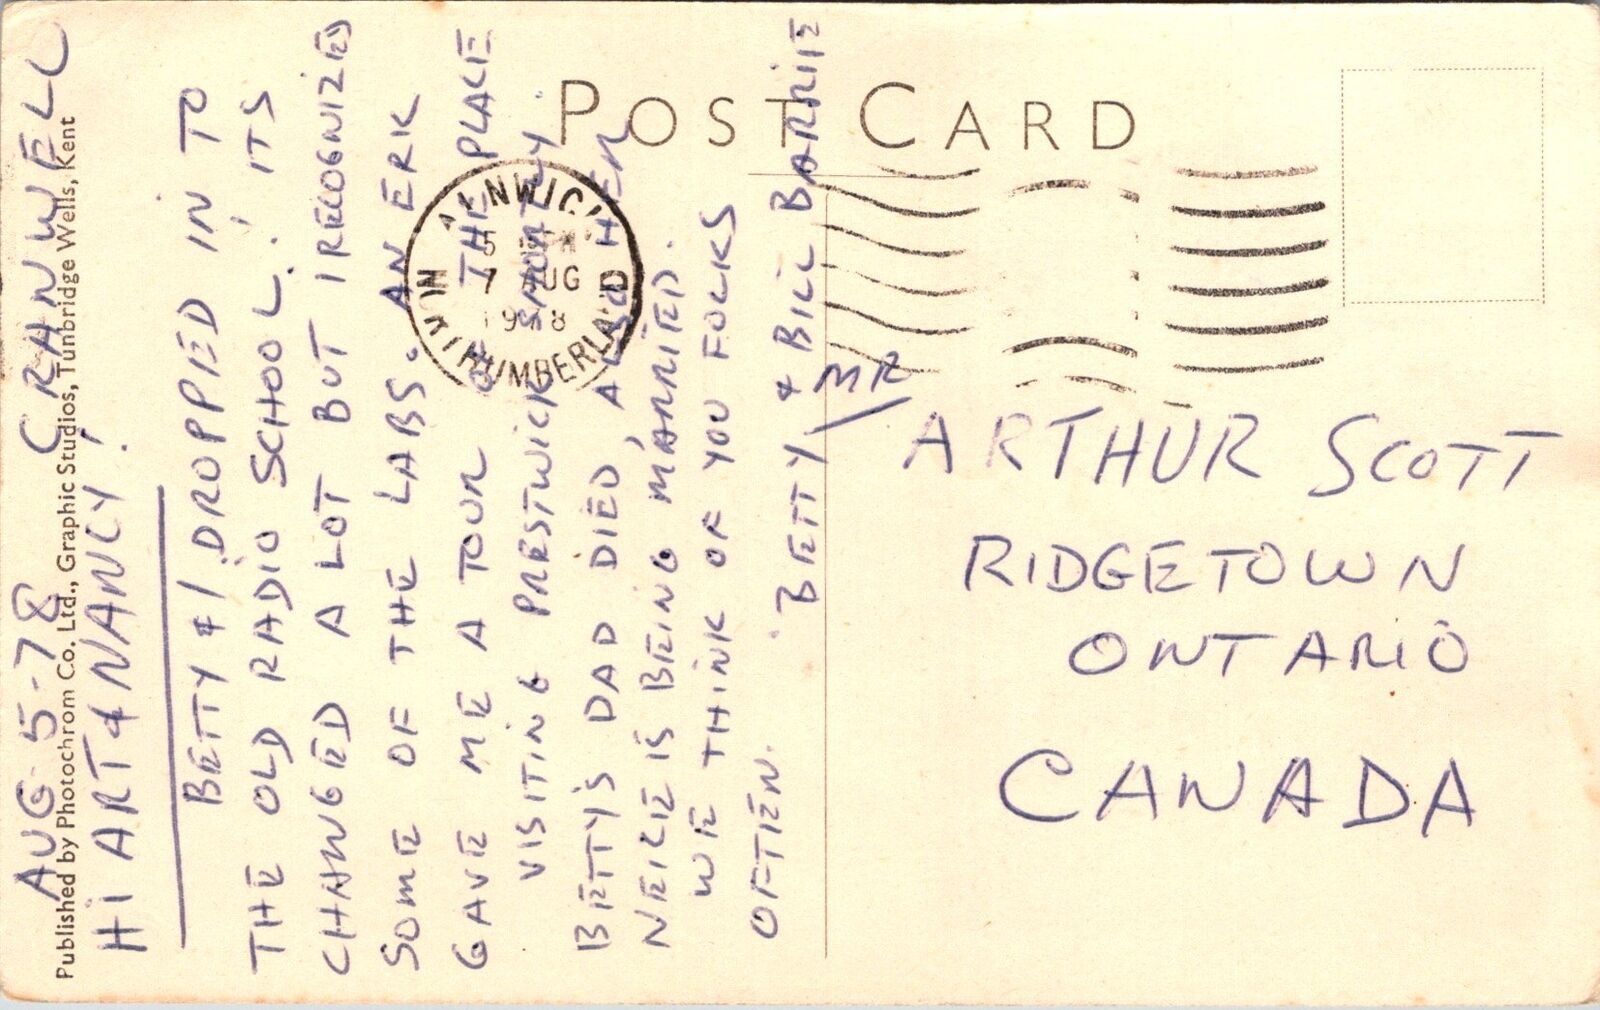 POST CARD
Published by Photochrom Co. Ltd., Graphic Studios, Tunbridge Wells, Kent
AUG 5-78 CRANWELL
HI ART & NANCY!
BETTY & I DROPPED IN TO
THE OLD RADIO SCHOOL! ITS
CHANGED A LOT BUT I RECOGNIZED
SOME OF THE LABS. AN ERK
GAVE ME A TOUR OF THE PLACE
VISITING PRESTWICK SHORTLY.
BETTY'S DAD DIED, ALSO HER
IS BEING MARRIED.
WE THINK OF YOU FOLKS
OFTEN.
BETTY & BILL BARRIE
ALNWICK
7 AUG
MR
ARTHUR SCOTT
RIDGETOWN
ONTARIO
CANADA